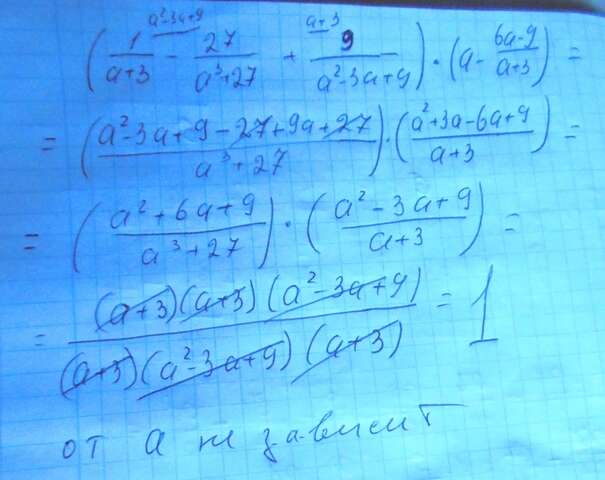 a²-3a+9 a+3
(1/(a+3) - 27/(a³+27) + 9/(a²-3a+9)) · (a - (6a-9)/(a+3)) =
= ((a²-3a+9-27+9a+27)/(a³+27)) · ((a²+3a-6a+9)/(a+3)) =
= ((a²+6a+9)/(a³+27)) · ((a²-3a+9)/(a+3)) =
= ((a+3)(a+3)(a²-3a+9))/((a+3)(a²-3a+9)(a+3)) = 1
от а не зависит